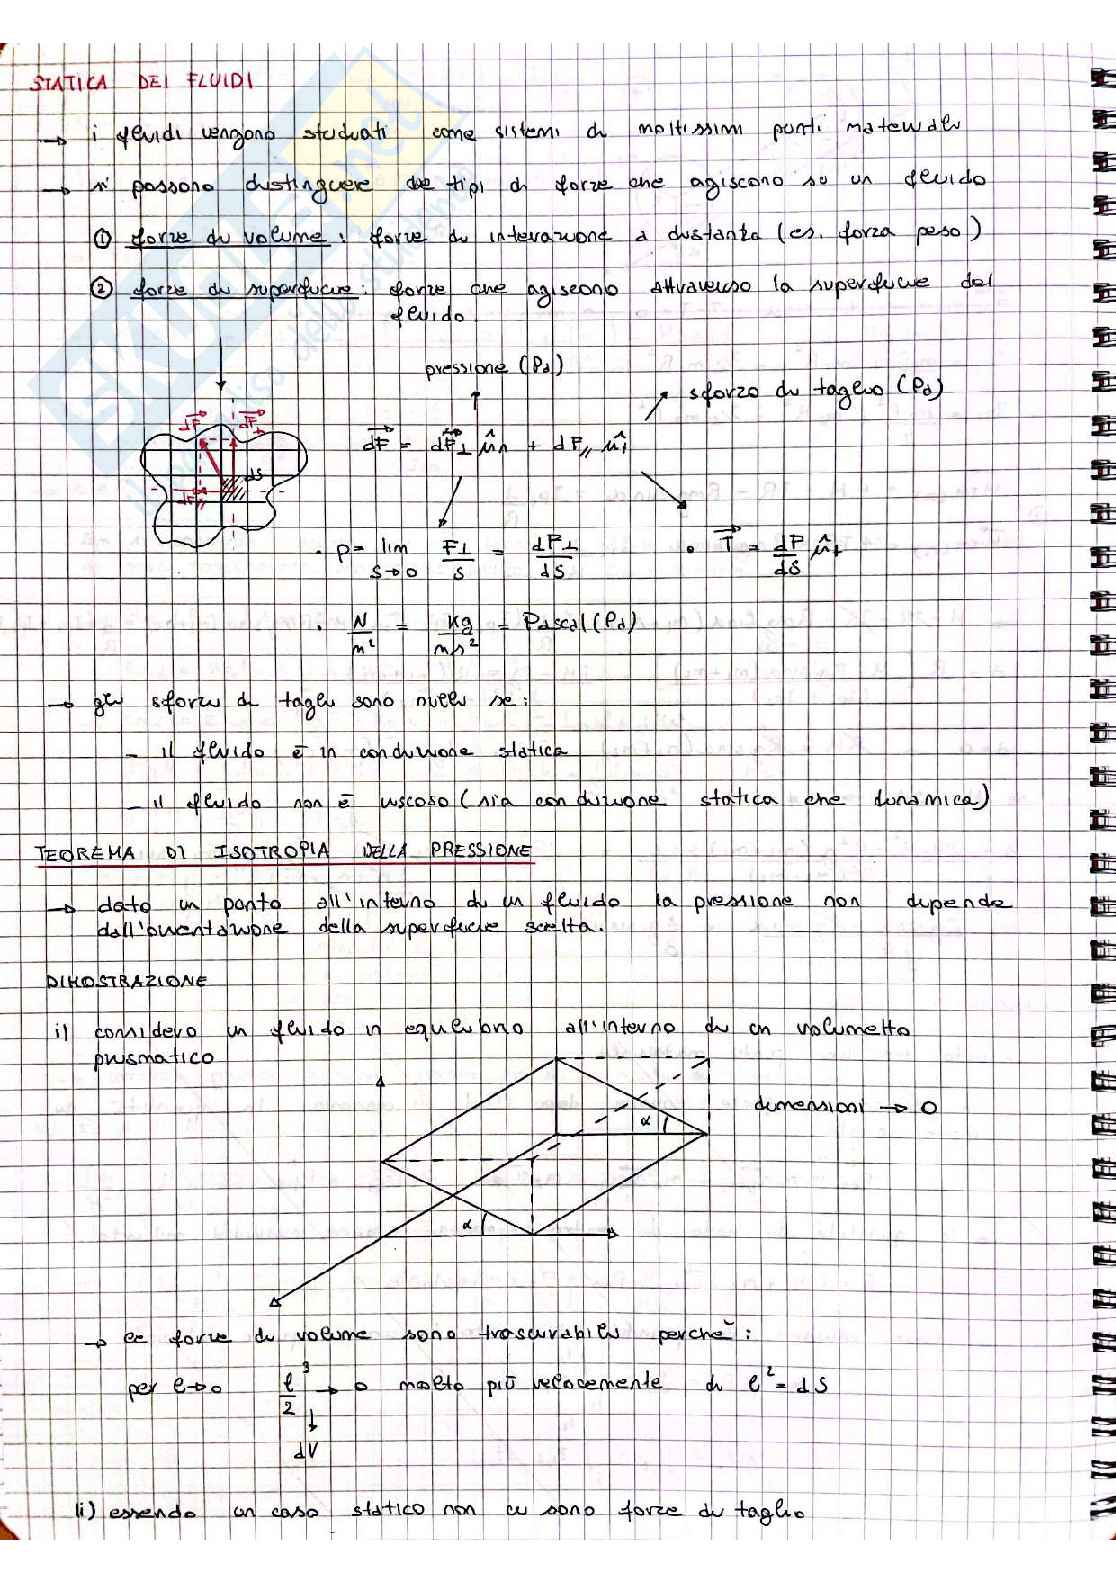 STATICA DEI FLUIDI
→ i fluidi vengono studiati come sistemi di moltissimi punti materiali
→ si possono distinguere due tipi di forze che agiscono su un fluido
① forze di volume: forze di interazione a distanza (es. forza peso)
② forze di superficie: forze che agiscono attraverso la superficie del
fluido
pressione (Pa)
sforzo di taglio (Pa)
dF = dF⊥ ûn + dF// ût
dS
• P = lim S→0 F⊥/S = dF⊥/dS
• T = dF/dS ût
• N/m² = Kg/ms² = Pascal (Pa)
→ gli sforzi di taglio sono nulli se:
- il fluido è in condizione statica
- il fluido non è viscoso (sia condizione statica che dinamica)
TEOREMA DI ISOTROPIA DELLA PRESSIONE
→ dato un punto all'interno di un fluido la pressione non dipende
dall'orientazione della superficie scelta.
DIMOSTRAZIONE
i) considero un fluido in equilibrio all'interno di un volumetto
prismatico
dimensioni → 0
α
α
→ le forze di volume sono trascurabili perchè:
per l→0 l³/2 → 0 molto più velocemente di l² = dS
dV
ii) essendo un caso statico non ci sono forze di taglio